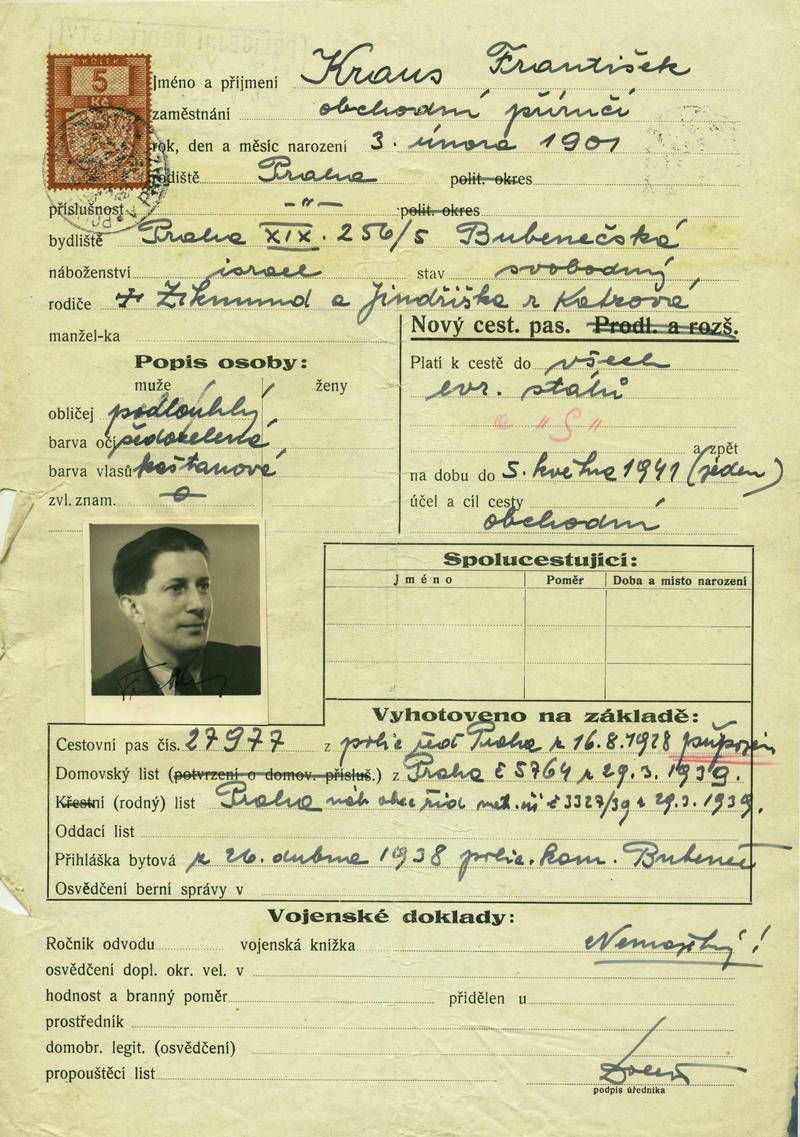 KOLEK
5
Kč
Jméno a příjmení Kraus František
zaměstnání obchodní příručí
rok, den a měsíc narození 3. února 1901
rodiště Praha polit. okres
příslušnost -"- polit. okres
bydliště Praha XIX. 256/5 Bubenečská
náboženství israel stav svobodný
rodiče Zikmund a Jindřiška r Katzová
manžel-ka
Nový cest. pas. Prodl. a rozš.
Popis osoby:
muže ženy
obličej podlouhlý
barva očí šedozelená
barva vlasů kaštanové
zvl. znam. o
Platí k cestě do všech
evr. států
a "S"
a zpět
na dobu do 5. května 1941 (jeden)
účel a cíl cesty
obchodní
Spolucestující:
Jméno Poměr Doba a místo narození
Vyhotoveno na základě:
Cestovní pas čís. 27977 z polic řed Praha z 16.8.1928
Domovský list (potvrzení o domov. přísluš.) z Praha č 5764 z 29.3.1939.
Křestní (rodný) list Praha náb obce žid mat. č 3327/39 z 29.3.1939.
Oddací list
Přihláška bytová z 26. dubna 1938 polic. kom. Bubeneč
Osvědčení berní správy v
Vojenské doklady:
Ročník odvodu vojenská knížka
osvědčení dopl. okr. vel. v
hodnost a branný poměr přidělen u
prostředník
domobr. legit. (osvědčení)
propouštěcí list
podpis úředníka